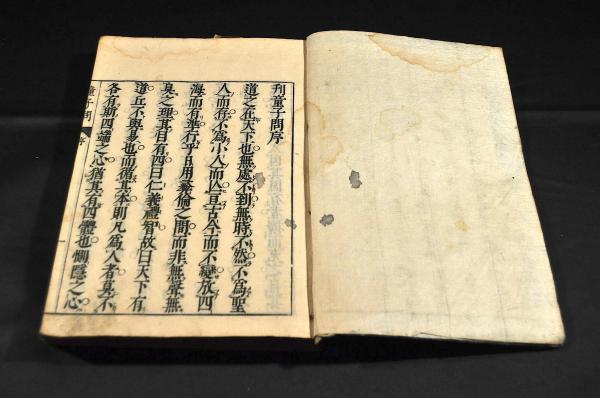 刊童子問序
道之在天下也無處不到無時不然不爲聖
人而存不爲小人而亡亘古今而不變放四
海而有準行乎日用彝倫之間而非無聲無
臭之理其目有四曰仁義禮智故曰天下有
道丘不與易也而循其本則凡爲人者莫不
各有斯四端之心猶其有四體也惻隱之心
童子問 序